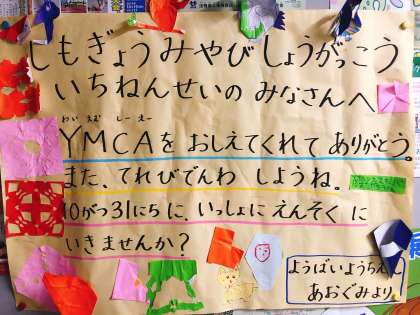 しもぎょうみやびしょうがっこう
いちねんせいの みなさんへ
わい えむ しーえー
YMCAを おしえてくれて ありがとう。
また、てれびでんわ しようね。
10がつ31にちに、いっしょに えんそくに
いきませんか?
ようばいようちえん
あおぐみより